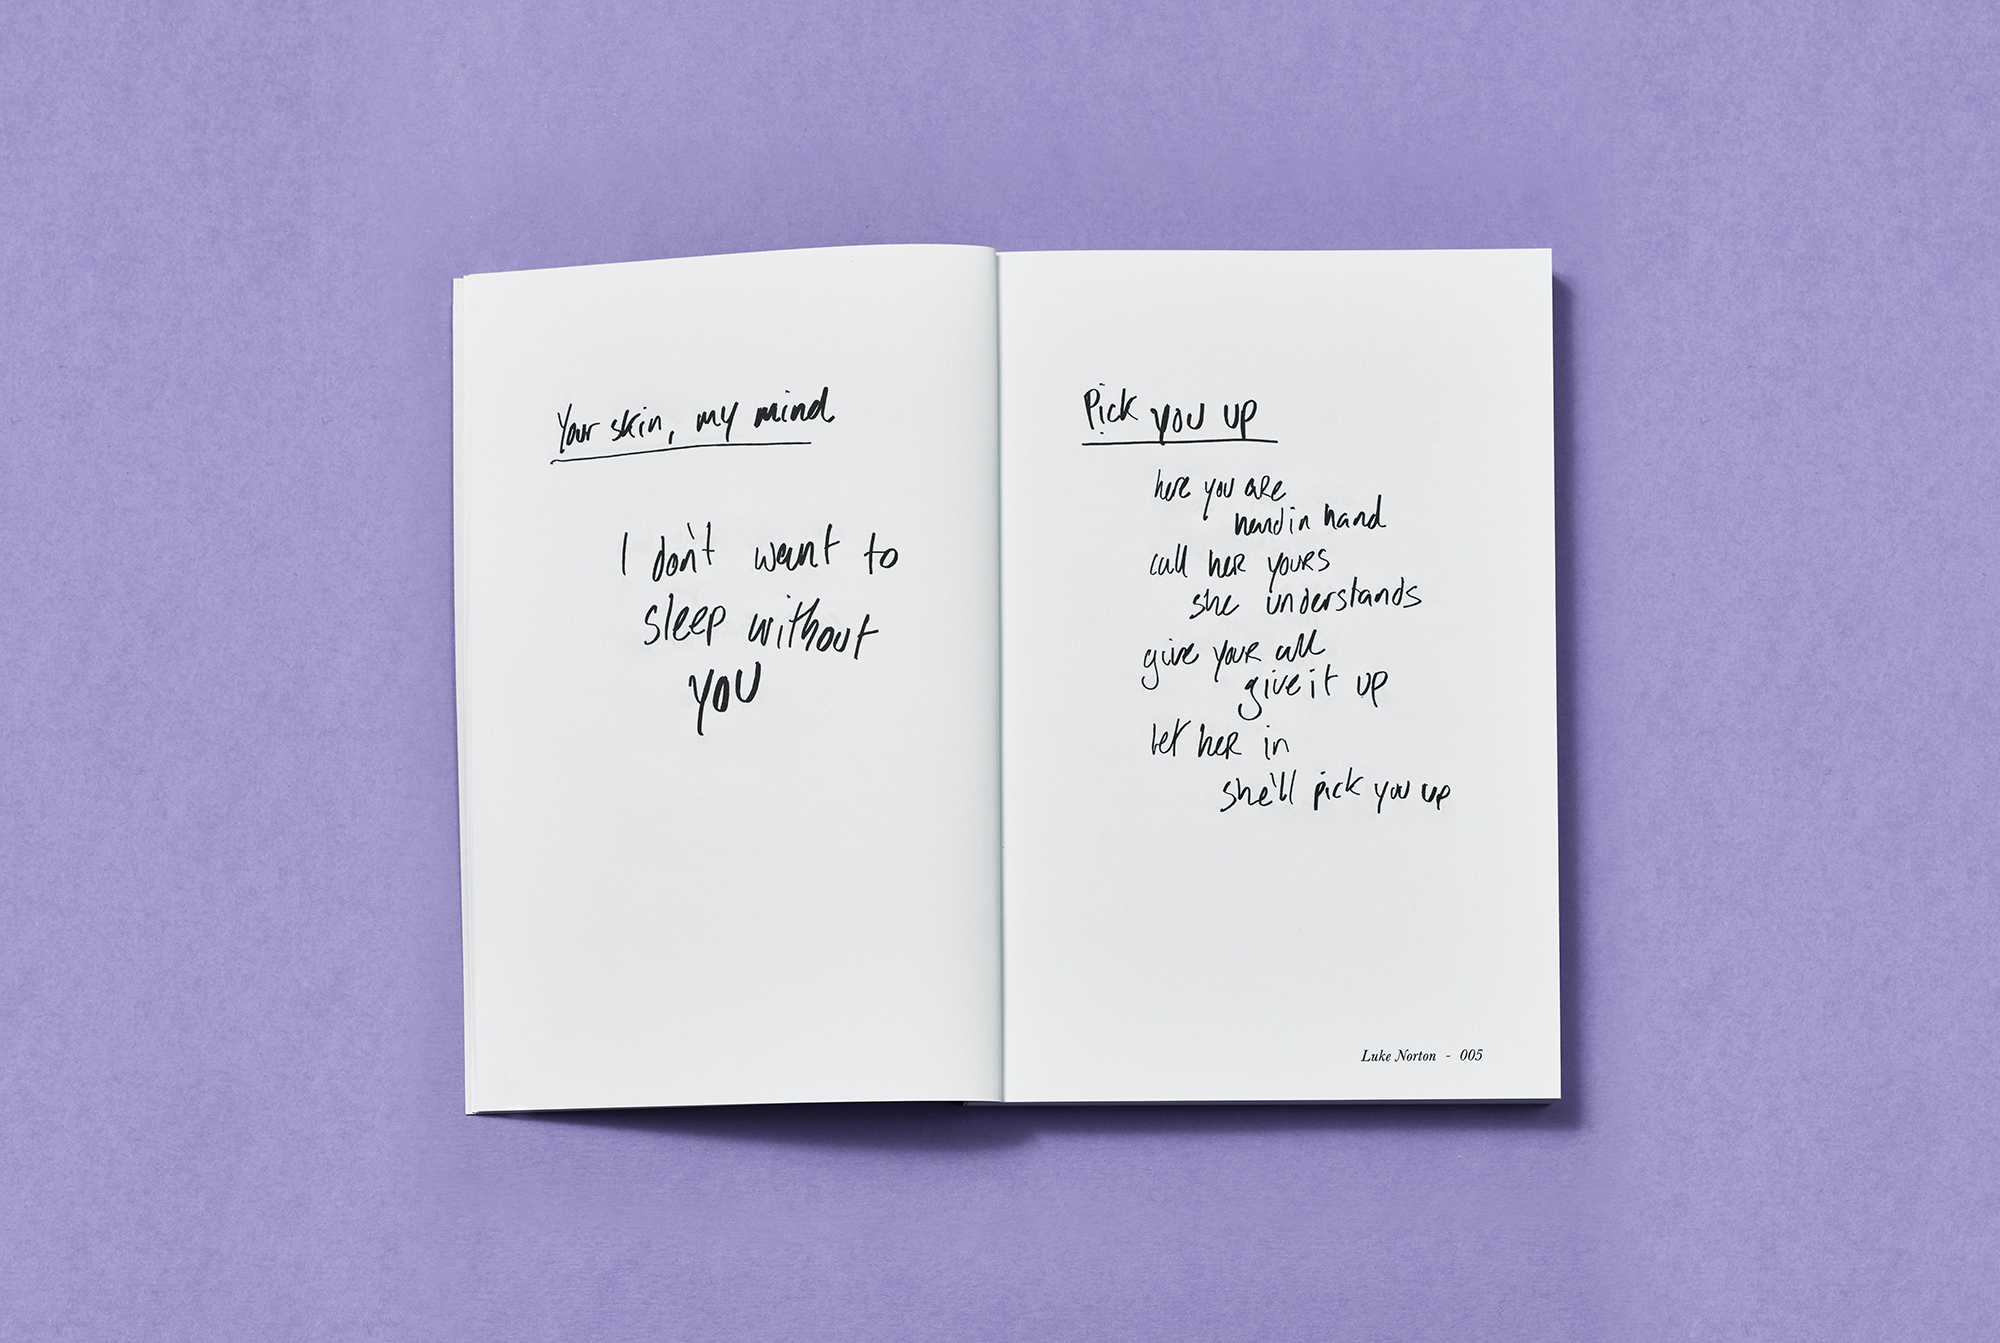 Your skin, my mind
I don't want to
sleep without
you
Pick you up
here you are
hand in hand
call her yours
she understands
give your all
give it up
let her in
she'll pick you up
Luke Norton - 005